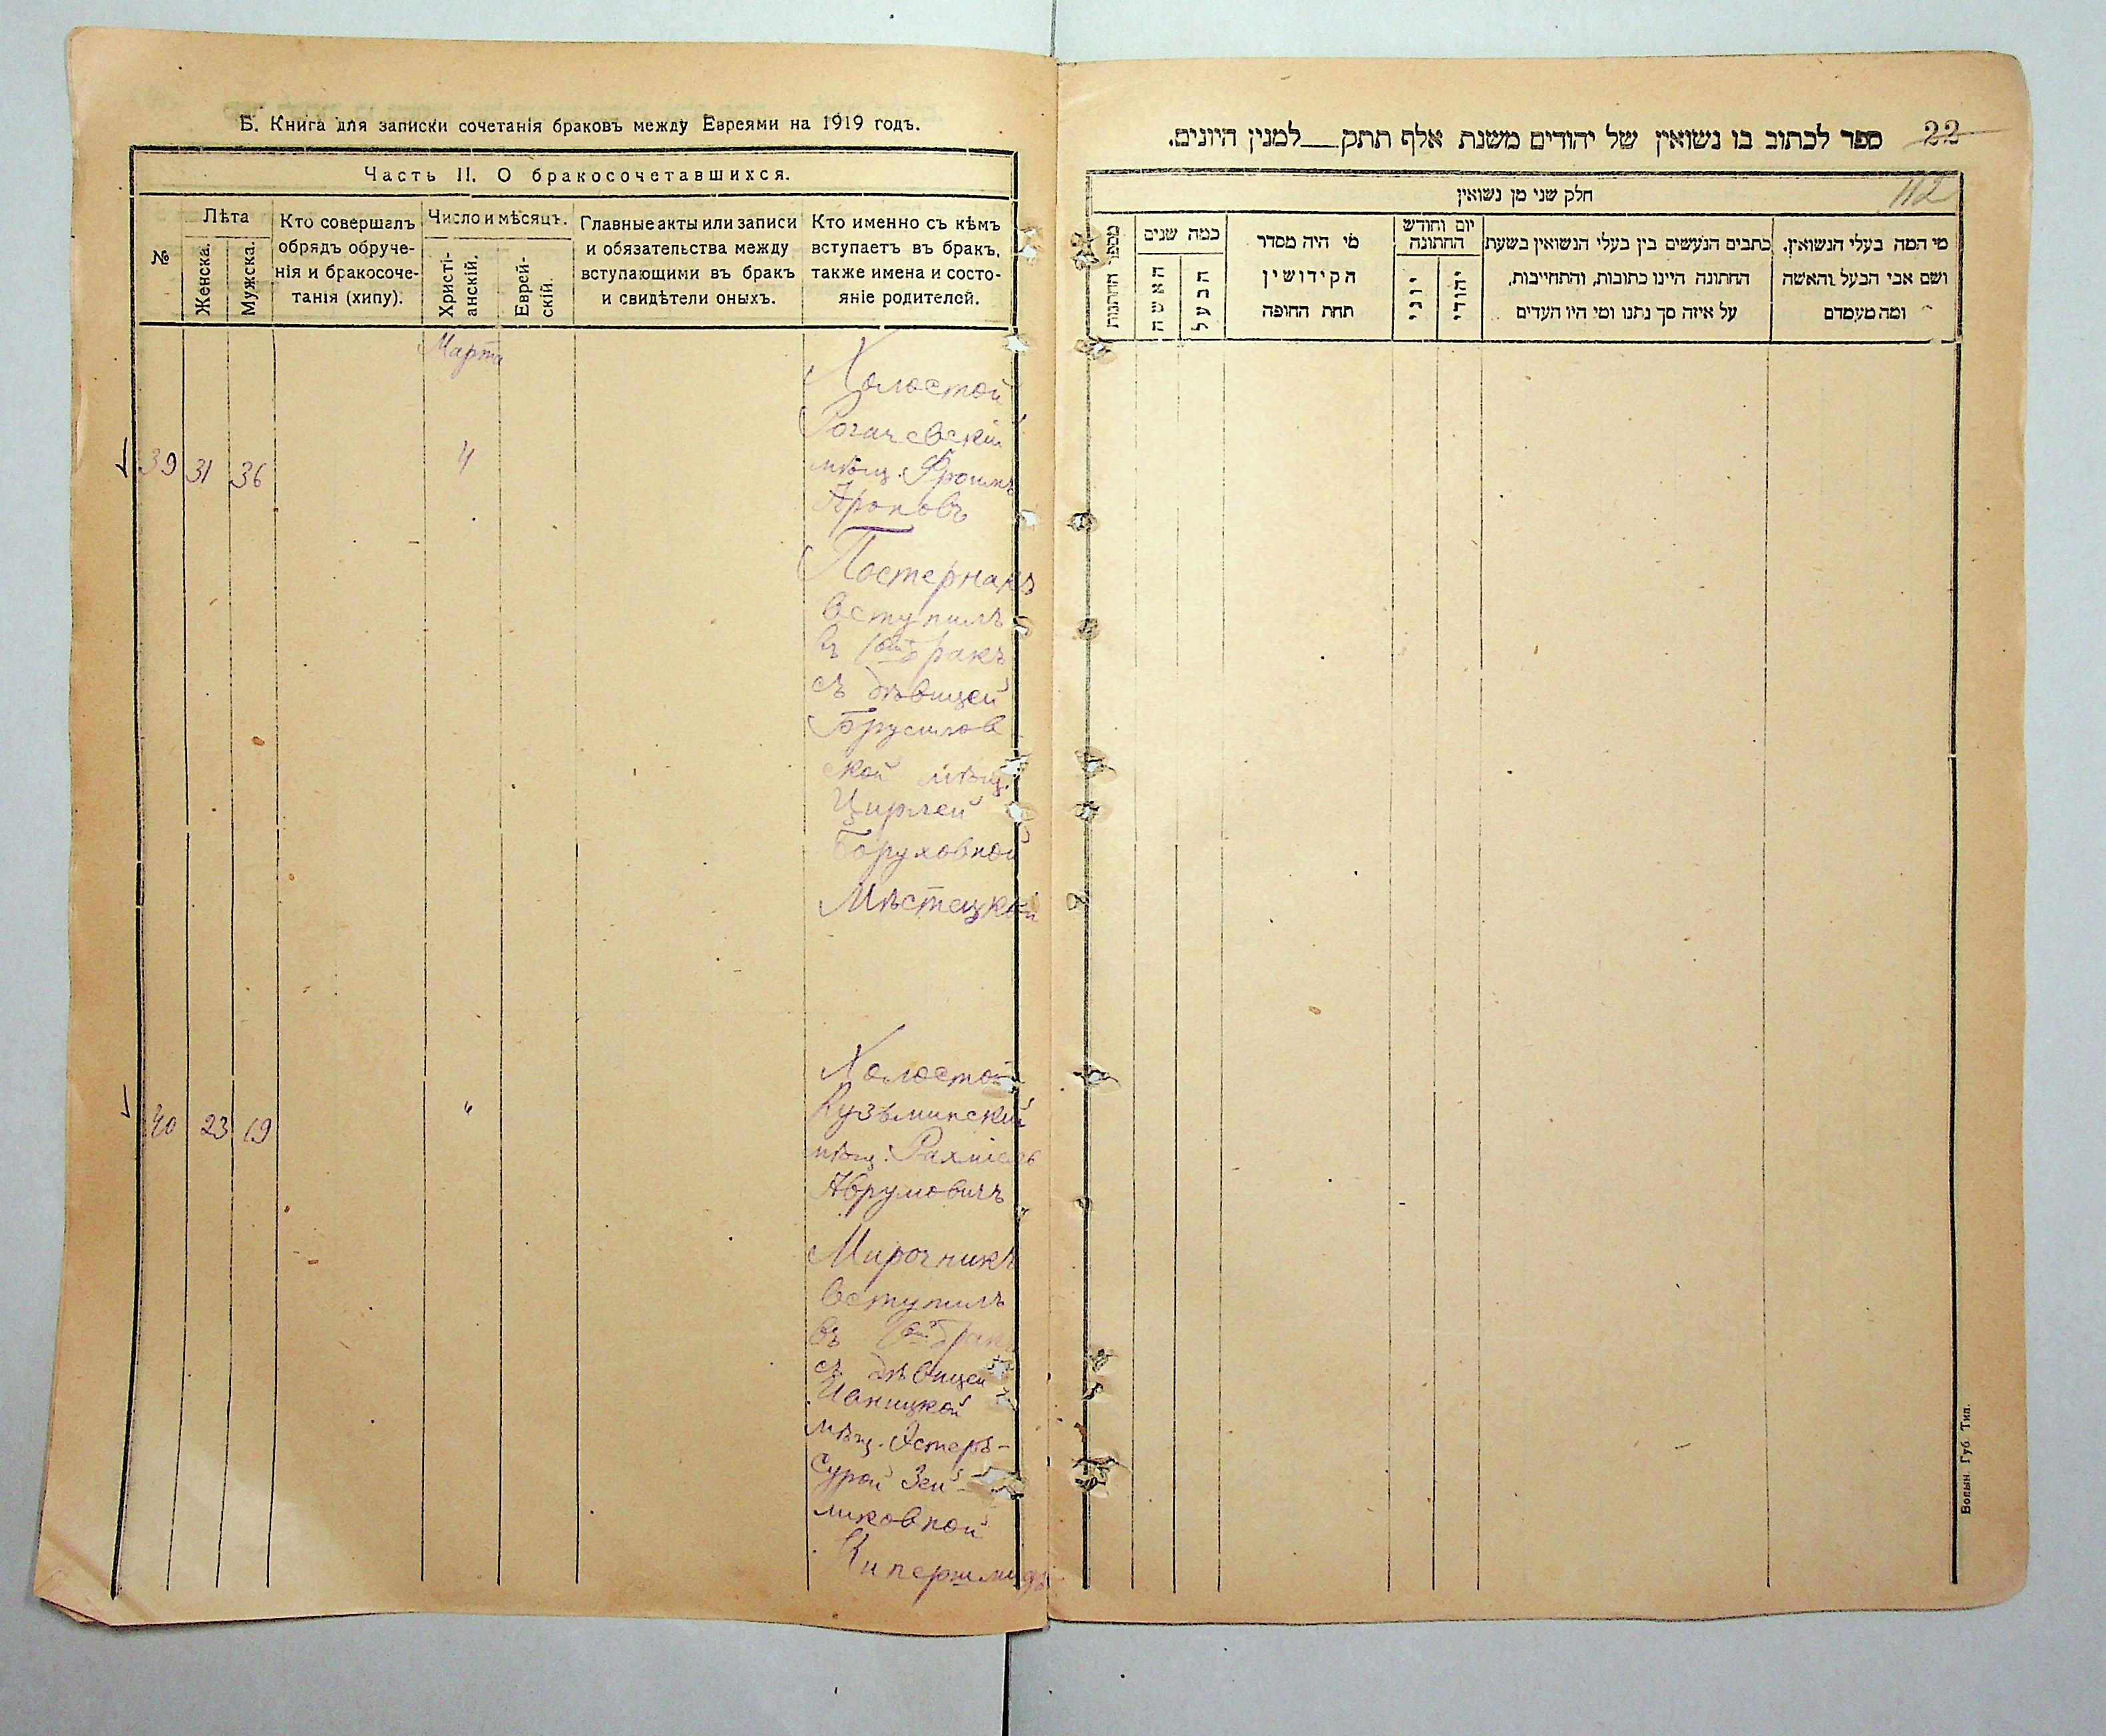 Б. Книга для записки сочетанія браковъ между Евреями на 1919 годъ.
Часть II. О бракосочетавшихся.
№
Лѣта
Женска.
Мужска.
Кто совершалъ
обрядъ обруче-
нія и бракосоче-
танія (хипу).
Число и мѣсяцъ.
Христі-
анскій.
Еврей-
скій.
Главные акты или записи
и обязательства между
вступающими въ бракъ
и свидѣтели оныхъ.
Кто именно съ кѣмъ
вступаетъ въ бракъ,
также имена и состо-
яніе родителей.
Марта
39 31 36 4
Холостой
Рогачевскій
мѣщ. Фроимъ
Ароновъ
Постернакъ
вступилъ
въ 1ый бракъ
съ дѣвицей
Брусилов
ской мѣщ.
Цирлей
Боруховной
Мѣстецкой
40 23 19 "
Холостой
Кузьминскій
мѣщ. Рахміель
Аврумовичъ
Мирочникъ
вступилъ
въ 1ый брак
съ дѣвицей
Иваницкой
мѣщ. Эстеръ-
Сурой Зей-
ликовной
Кипершмидъ
22
ספר לכתוב בו נשואין של יהודים משנת אלף תתק__למנין היונים.
112
חלק שני מן נשואין
מספר החתונות
כמה שנים
האשה
הבעל
מי היה מסדר
הקידושין
תחת החופה
יום וחודש
החתונה
יוני
יהודי
כתבים הנעשים בין בעלי הנשואין בשעת
החתונה היינו כתובות, והתחייבות,
על איזה סך נתנו ומי היו העדים
מי המה בעלי הנשואין,
ושם אבי הבעל והאשה
ומה מעמדם
Волын. Губ. Тип.